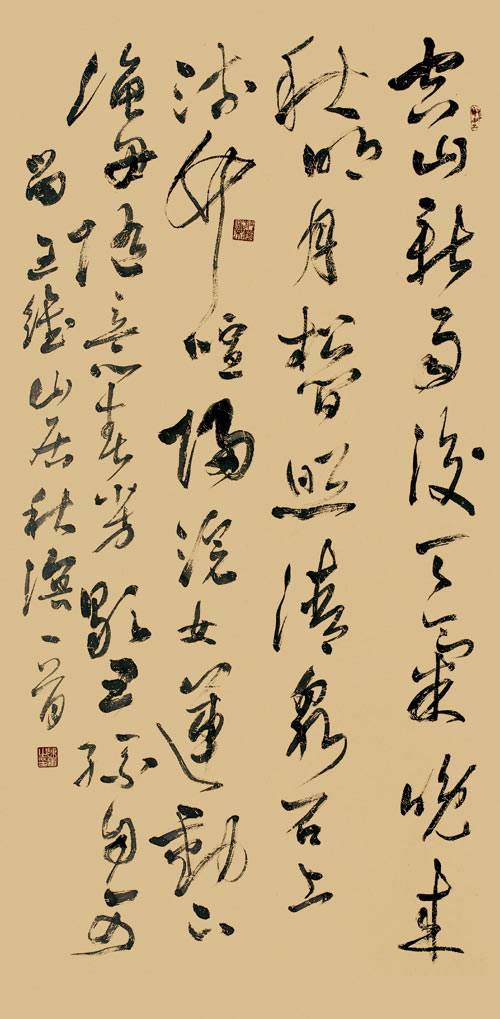 空山新雨後天氣晚來
秋明月松間照清泉石上
流竹喧歸浣女蓮動下
漁舟隨意春芳歇王孫自可
留王維山居秋暝一首